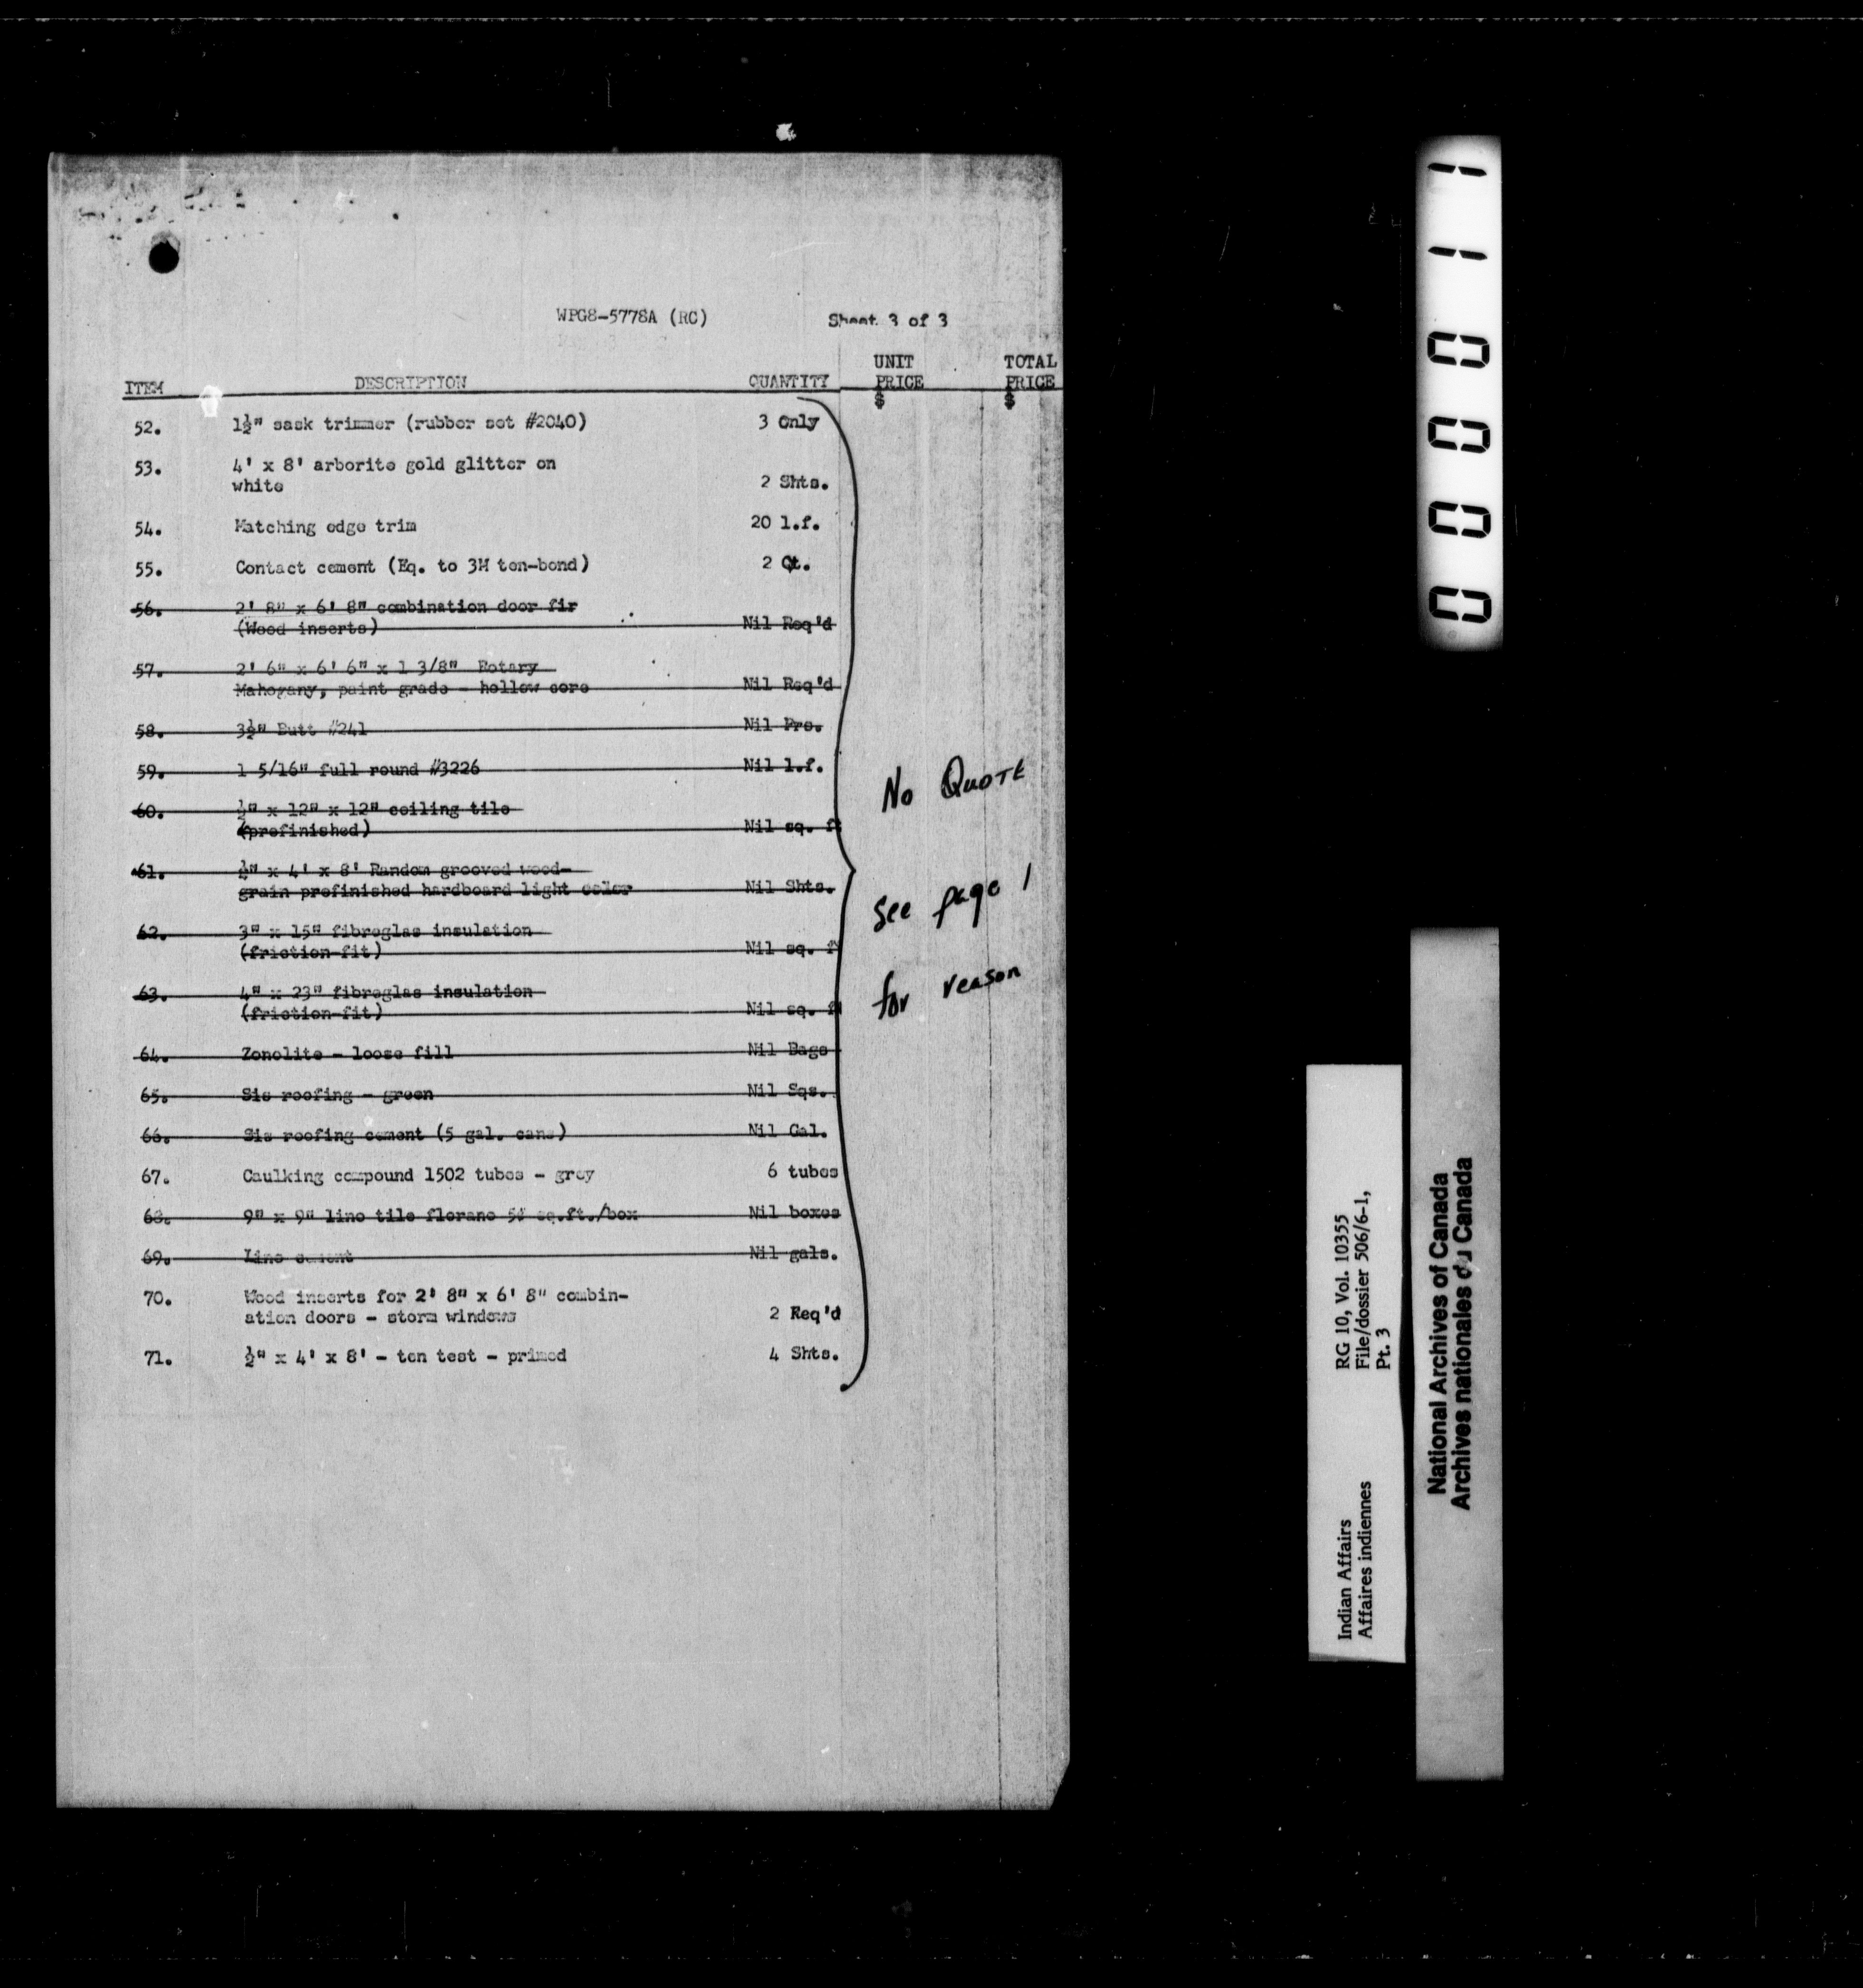 WPG8-5778A (RC) Sheet 3 of 3
UNIT TOTAL
ITEM DESCRIPTION QUANTITY PRICE PRICE
$ $
52. 1½" sask trimmer (rubber set #2040) 3 Only
53. 4' x 8' arborite gold glitter on
white 2 Shts.
54. Matching edge trim 20 l.f.
55. Contact cement (Eq. to 3M ten-bond) 2 Qt.
56. 2' 8" x 6' 8" combination door fir
(Wood inserts) Nil Req'd
57. 2' 6" x 6' 6" x 1 3/8" Rotary
Mahogany, paint grade - hollow core Nil Req'd
58. 3½" Butt #241 Nil Prs.
59. 1 5/16" full round #3226 Nil l.f.
60. ½" x 12" x 12" ceiling tile
(prefinished) Nil sq. f
61. ¼" x 4' x 8' Random grooved wood-
grain prefinished hardboard light color Nil Shts.
62. 3" x 15" fibreglas insulation
(friction-fit) Nil sq. f
63. 4" x 23" fibreglas insulation
(friction-fit) Nil sq. f
64. Zonolite - loose fill Nil Bags
65. Sis roofing - green Nil Sqs.
66. Sis roofing cement (5 gal. cans) Nil Gal.
67. Caulking compound 1502 tubes - grey 6 tubes
68. 9" x 9" lino tile florano sq.ft./box Nil boxes
69. Lino cement Nil gals.
70. Wood inserts for 2' 8" x 6' 8" combin-
ation doors - storm windows 2 Req'd
71. ½" x 4' x 8' - ten test - primed 4 Shts.
No Quote
see page 1
for reason
000011
Indian Affairs RG 10, Vol. 10355
Affaires indiennes File/dossier 506/6-1,
Pt. 3
National Archives of Canada
Archives nationales du Canada